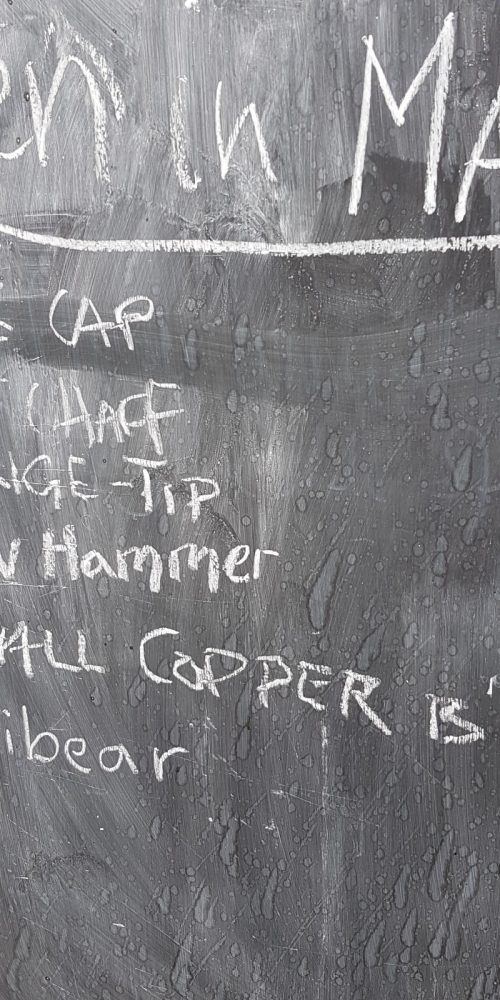 en in MA
E CAP
CHAFF
NGE-TIP
W Hammer
ALL COPPER B'
ibear